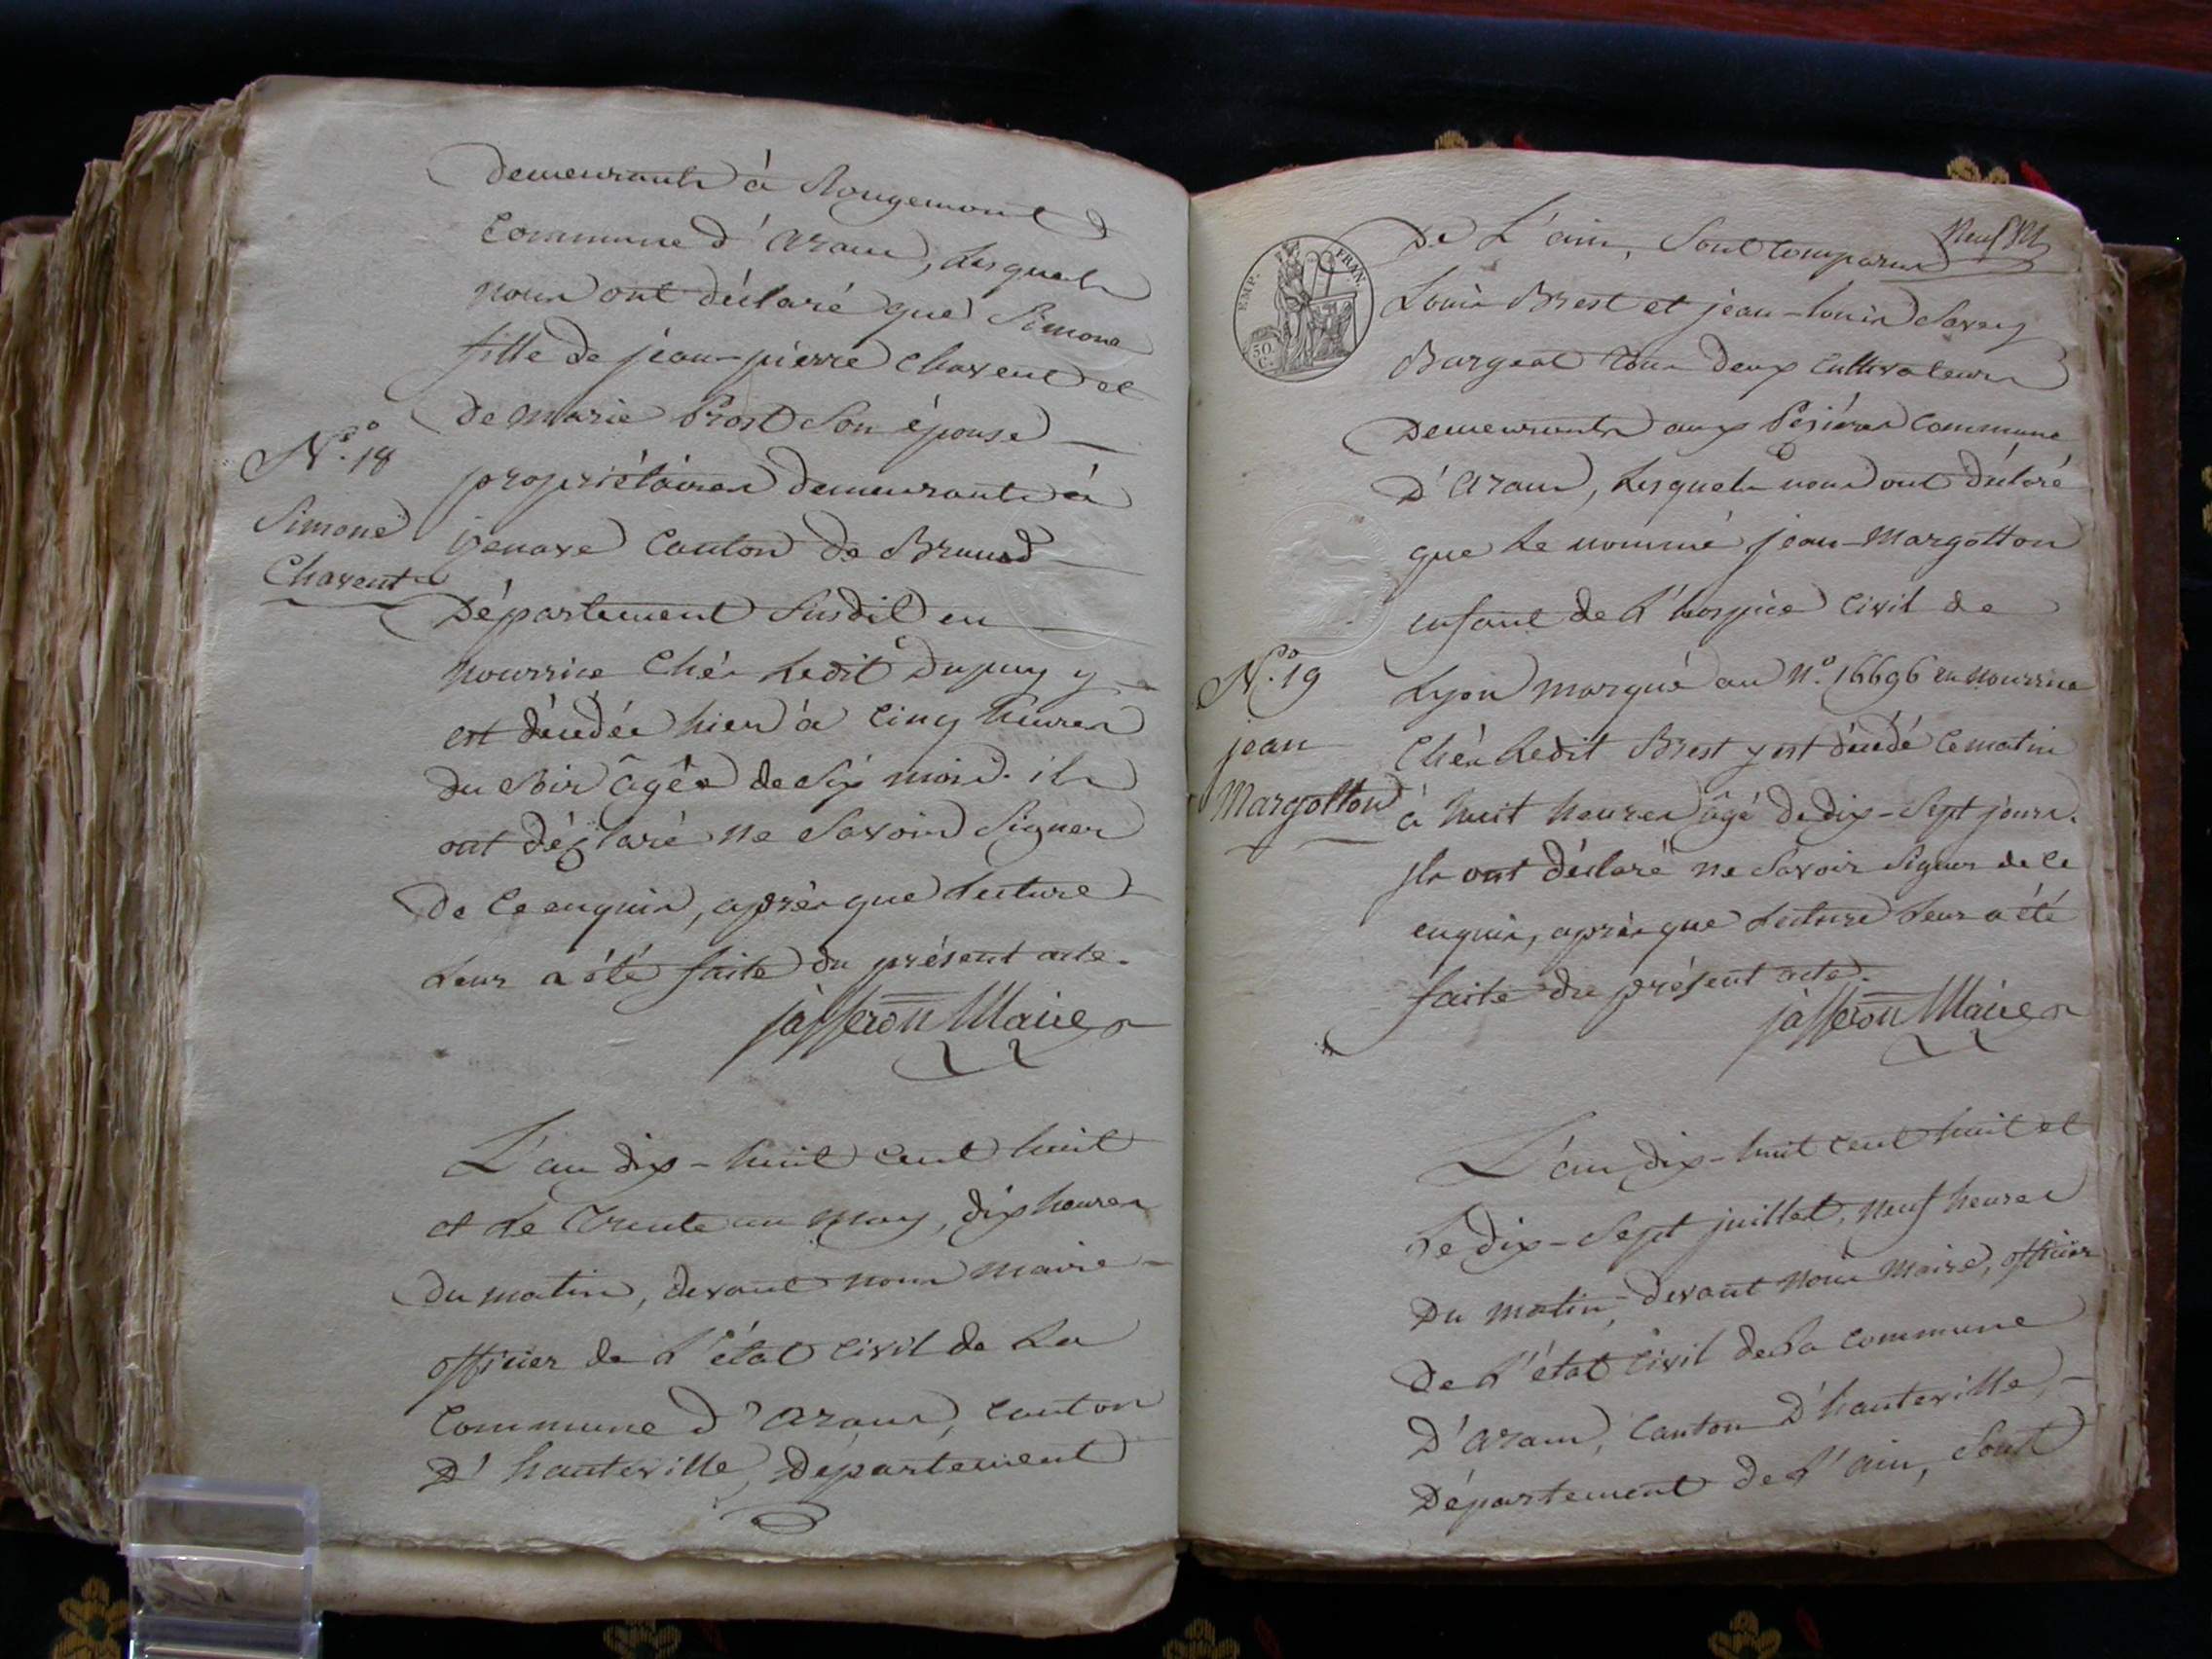 demeurants à Rougemont
Commune d'Aranc, Lesquels
nous ont déclaré que Simone
fille de jean-pierre Chavent et
de marie Prost Son épouse
N.º 18
propriétaires demeurants à
Simone
jzenave Canton de Brenod
Chavent
Département Susdit en
nourrice Chés Ledit Dupuy y
est décédée hier à Cinq heures
du Soir âgée de Six mois. ils
ont déclaré ne Savoir Signer
de Ce enquis, après que Lecture
Leur a été faite du présent acte.
jasseron Maire
L'an dix-huit Cent huit
et Le Trente un may, dix heures
du matin, devant nous maire
officier de L'état Civil de La
Commune d'Aranc, Canton
D'hauteville, Département
EMP. FRAN.
50 C.
De L'ain, Sont Comparus
Louis Brest et jean-Louis Savey
Bargeat Tous deux Cultivateurs
Demeurants aux Pézières Commune
D'Aranc, Lesquels nous ont déclaré
que Le nommé jean Margotton
enfant de L'hospice Civil de
N.º 19
Lyon marqué au N.º 16696 en nourrice
jean
Chés Ledit Brest y est décédé Ce matin
Margotton
à huit heures âgé de dix-Sept jours.
jls ont déclaré ne Savoir Signer de Ce
enquis, après que Lecture Leur a été
faite du présent acte.
jasseron Maire
L'an dix-huit Cent huit et
Le dix-Sept juillet, neuf heures
Du matin, devant nous Maire, officier
de L'état Civil de La Commune
D'Aranc, Canton D'hauteville,
Département de L'ain, Sont